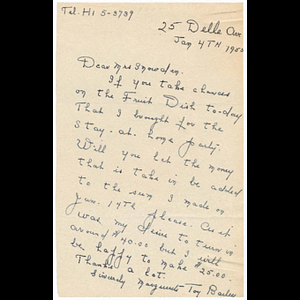 Tel. HI 5-3739
25 Delle Ave
Jan 4TH
Dear Mrs Snowden.
If you take chances
on the Fruit Dish to-day
That I brought for the
Stay-at-home party.
Will you let the money
that is take in be added
to the sum I made on
Jan. 17th please. as it
was my desire to turn in
around $40.00 but I will
be happy to make $25.00.
Thanks a lot.
Sincerly Marguerite